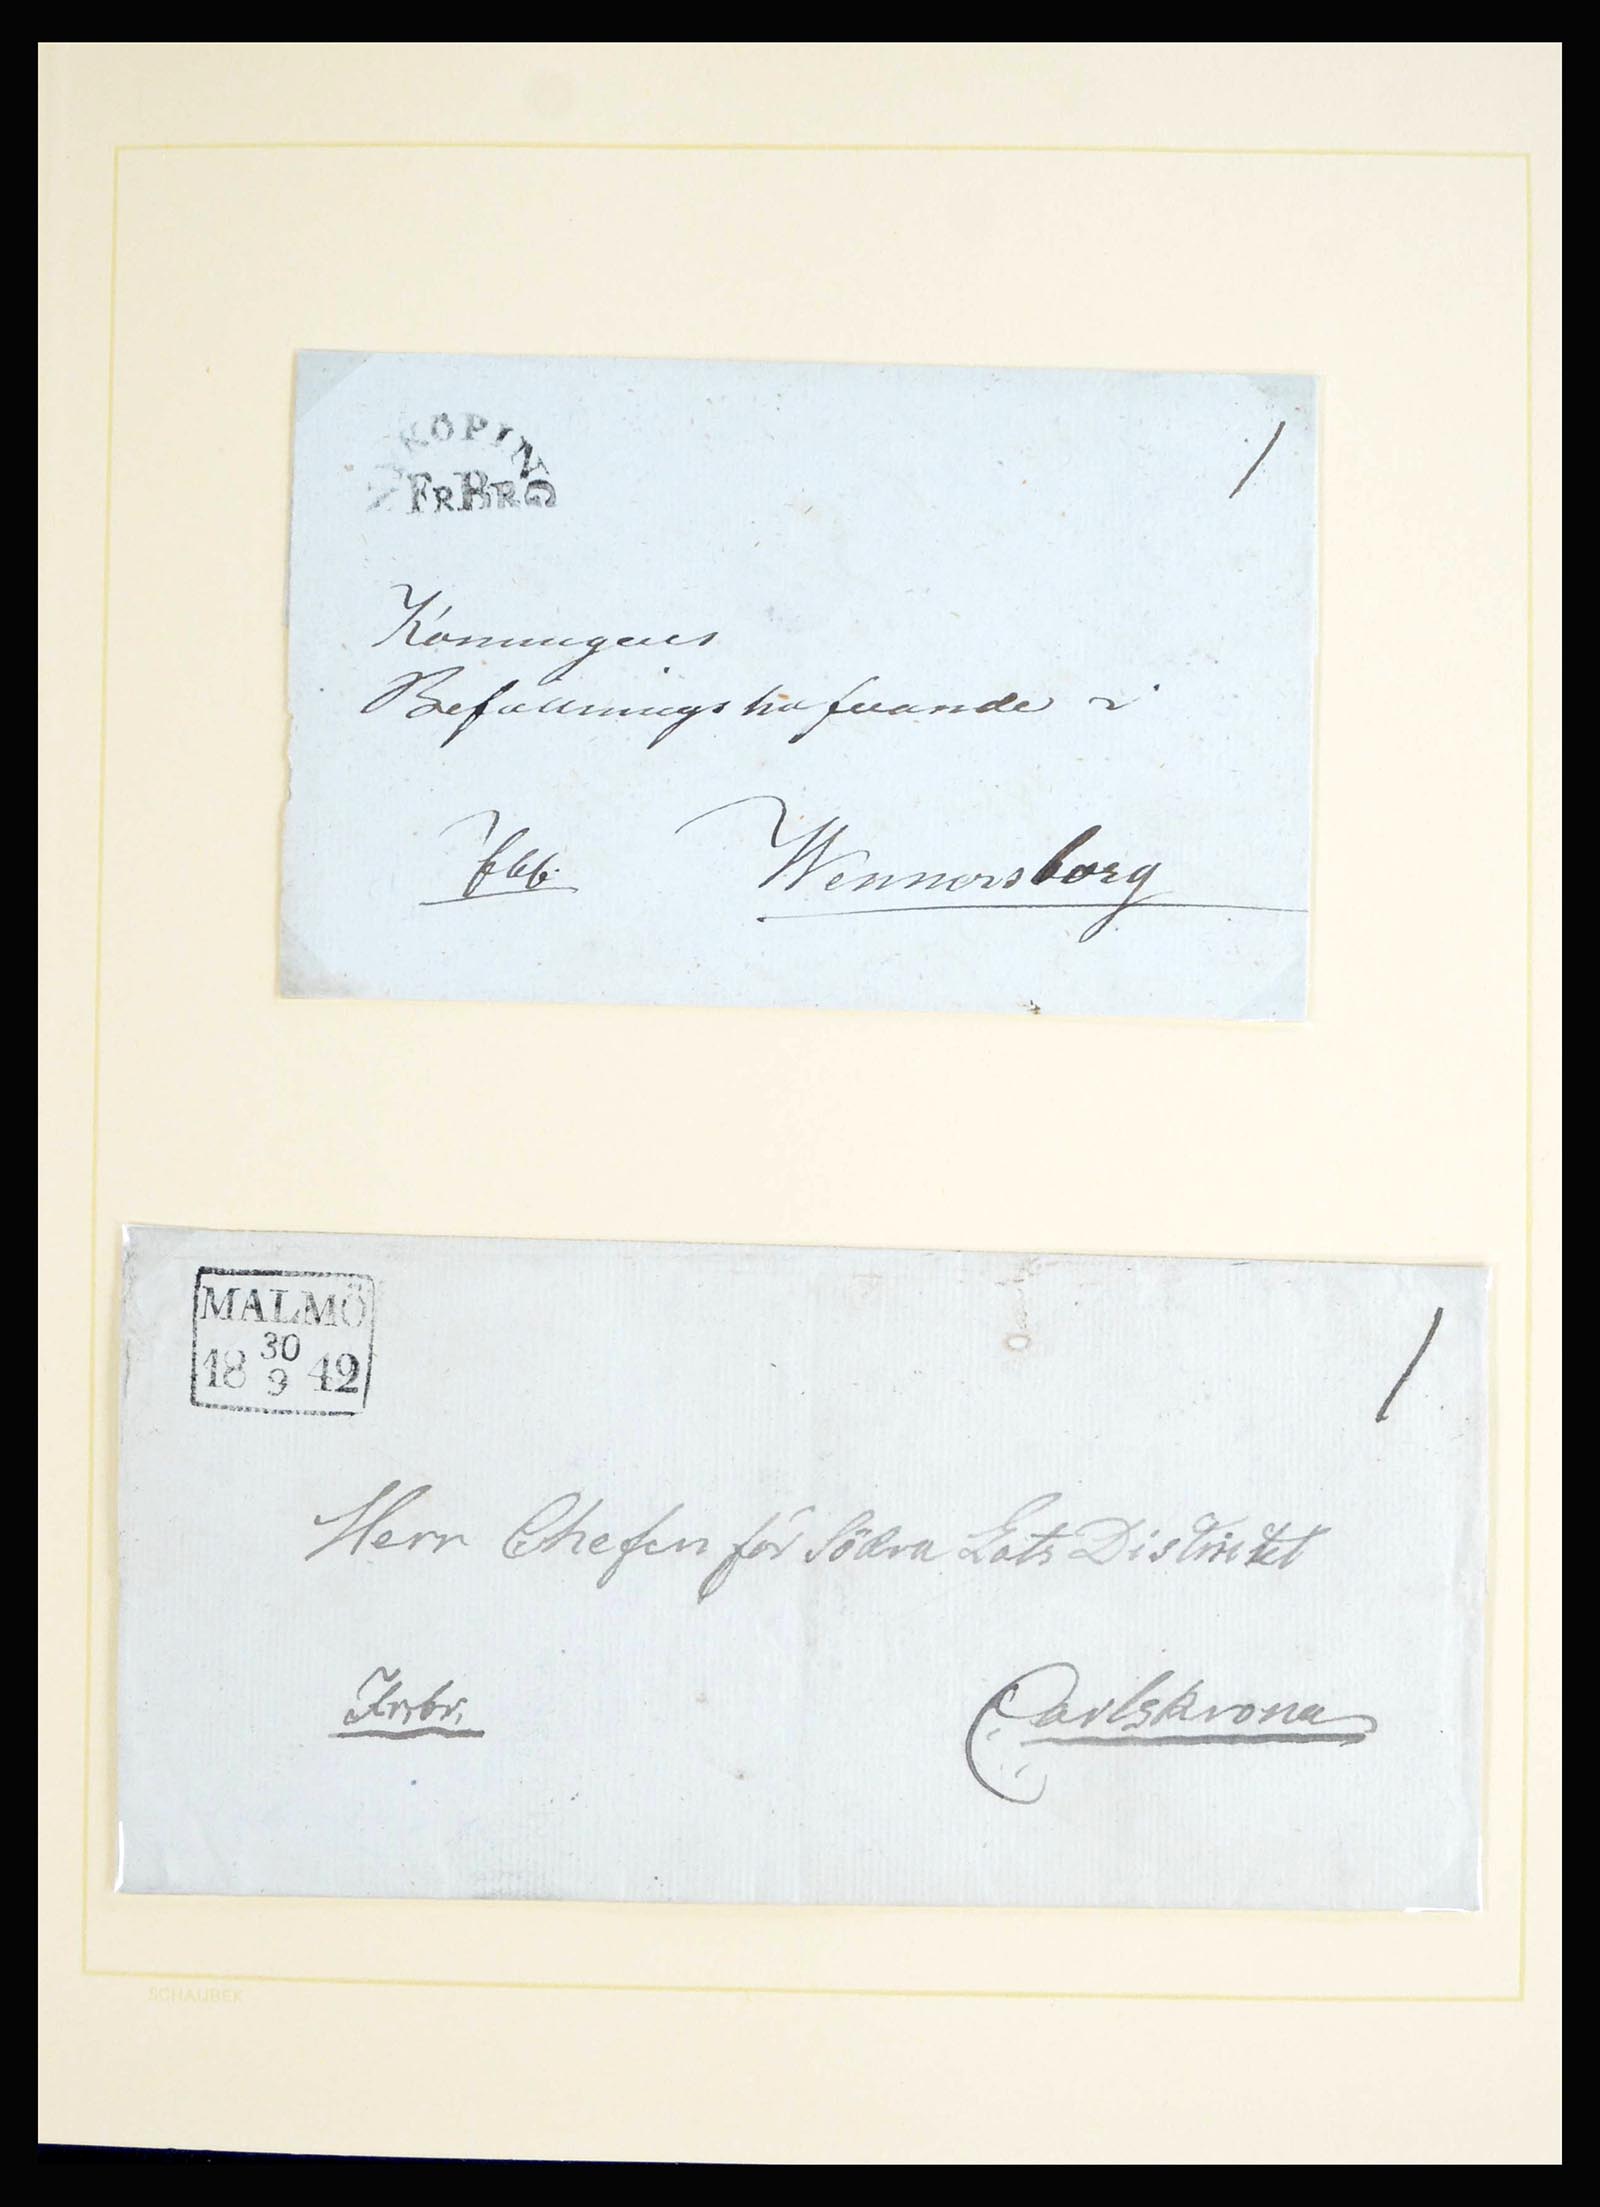 KÖPING
FRBRG
/
Konungens
Befallningshafvande i
Wennersborg
MALMÖ
18 30/9 42
/
Herr Chefen för Södra Lots Districtet
Frbr.
Carlskrona
SCHAUBEK